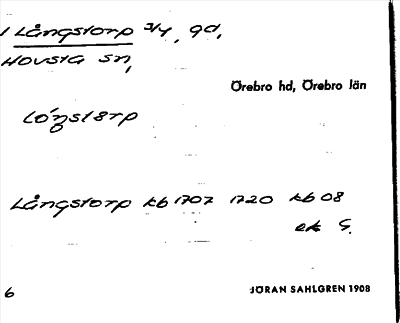 1 Långstorp 3/4, gd,
Hovsta sn,
Örebro hd, Örebro län
Långstorp kb 1707 1720 kb 08
ek G.
6
JÖRAN SAHLGREN 1908